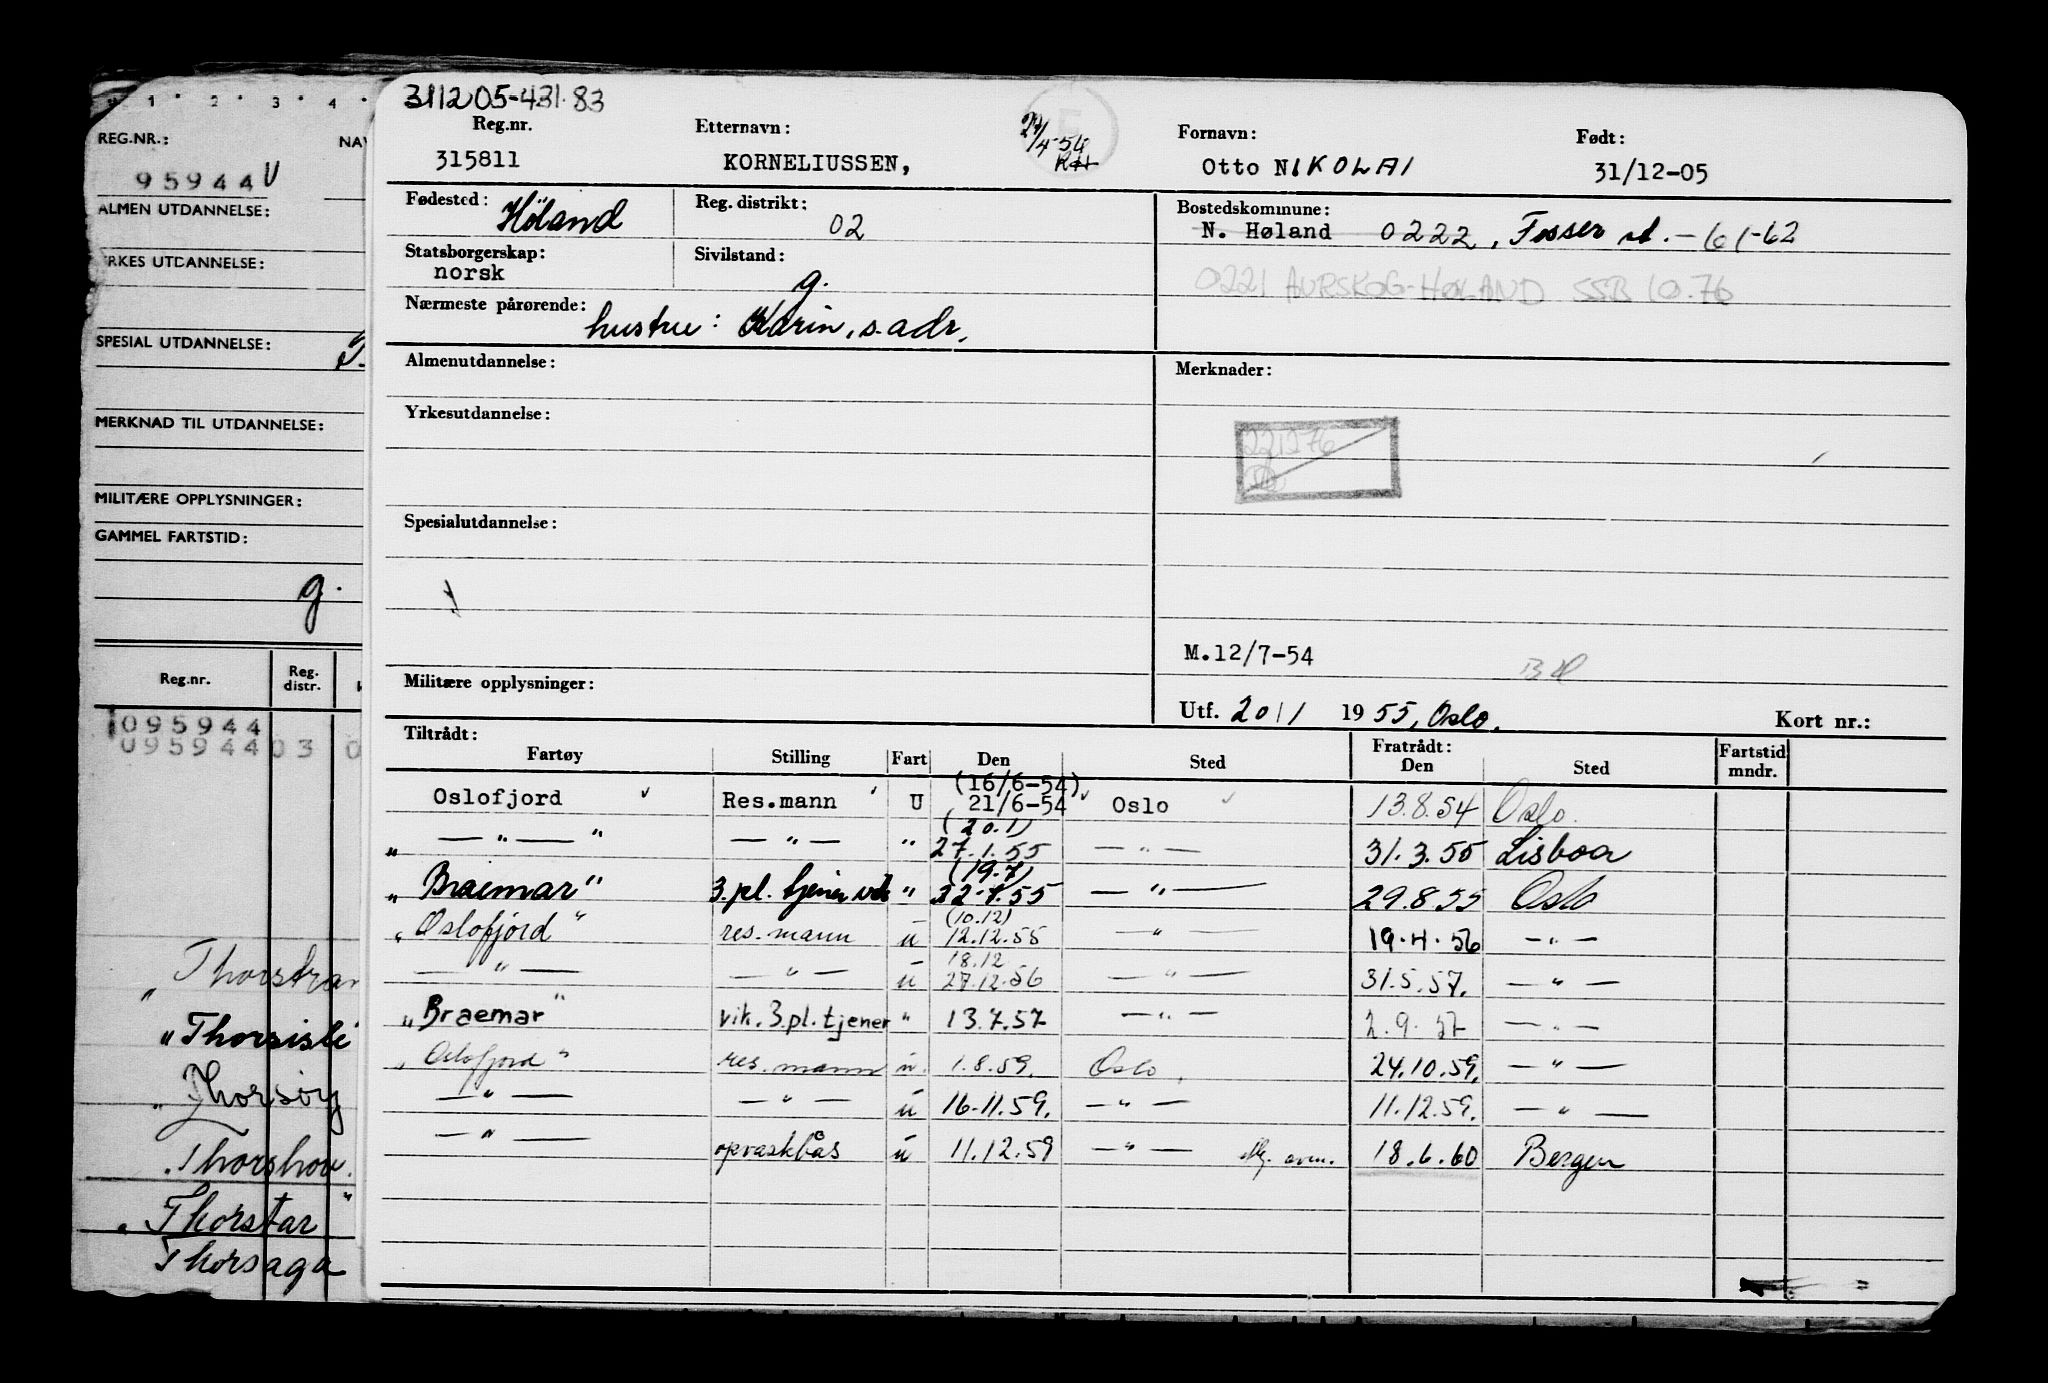 1 2 3 4
REG.NR.: NAV
95944 U
ALMEN UTDANNELSE:
YRKES UTDANNELSE:
SPESIAL UTDANNELSE:
MERKNAD TIL UTDANNELSE:
MILITÆRE OPPLYSNINGER:
GAMMEL FARTSTID:
g.
Reg.nr. Reg. distr.
095944
095944 03 0
Thorstran
"Thorsisle
Thorsøy
Thorshov
"Thorstar"
Thorsaga
311205-431.83
Reg.nr. Etternavn: Fornavn: Født:
315811 KORNELIUSSEN, Otto NIKOLAI 31/12-05
Fødested: Høland Reg. distrikt: 02 Bostedskommune:
N. Høland 0222, Fosser st. - 61-62
Statsborgerskap: norsk Sivilstand: g.
0221 AURSKOG-HØLAND SSB 10.76
Nærmeste pårørende: hustru: Karin, s. adr.
Almenutdannelse: Merknader:
Yrkesutdannelse:
221276
Spesialutdannelse:
M.12/7-54
Militære opplysninger:
Utf. 20/1 1955, Oslo. Kort nr.:
Tiltrådt: Fratrådt:
Fartøy Stilling Fart Den Sted Den Sted Fartstid mndr.
(16/6-54)
Oslofjord Res.mann U 21/6-54 Oslo 13.8.54 Oslo.
(20.1)
" — " — " — " — " 27.1.55 — " — 31.3.55 Lisboa
(19.7)
"Braemar" 3.pl. tjener " 22.7.55 — " — 29.8.55 Oslo
(10.12)
"Oslofjord" res.mann u 12.12.55 — " — 19.4.56 — " —
18.12
— " — — " — u 27.12.56 — " — 31.5.57. — " —
"Braemar" vik. 3.pl.tjener " 13.7.57 — " — 2.9.57 — " —
"Oslofjord" res.mann u. 1.8.59. Oslo, 24.10.59. — " —
— " — — " — u 16.11.59. — " — 11.12.59. — " —
— " — opvaskbås u 11.12.59 — " — 18.6.60 Bergen